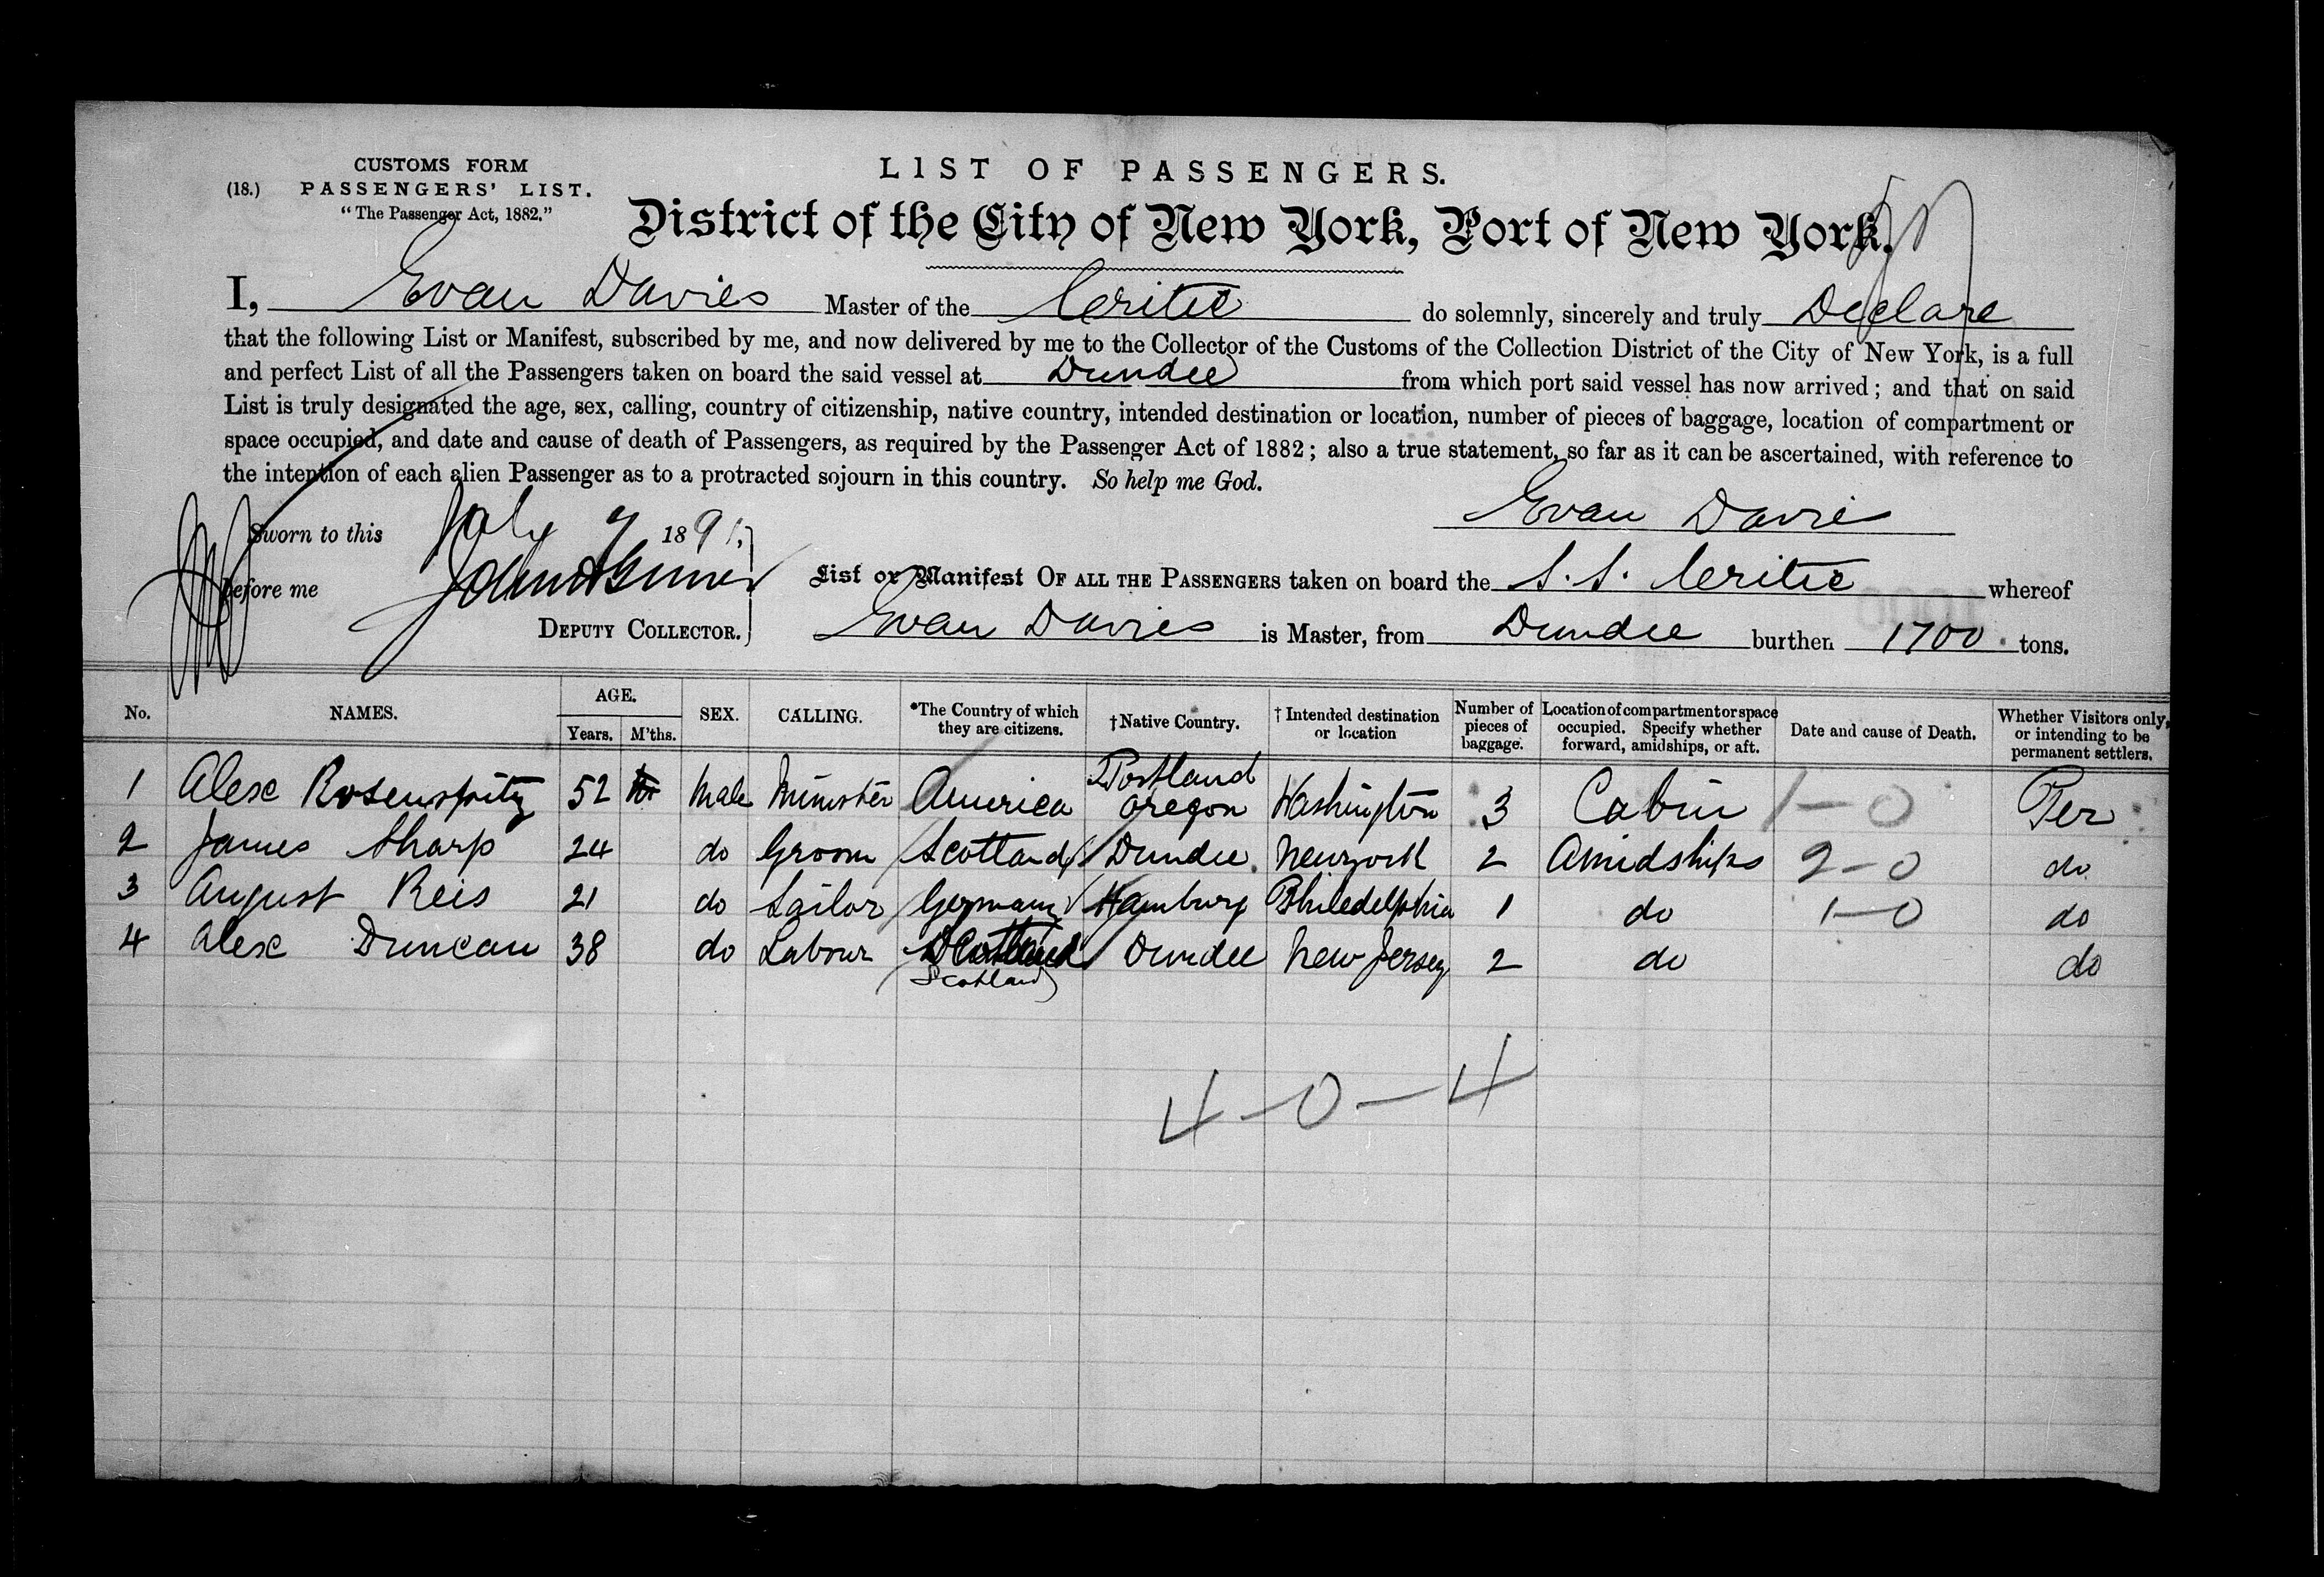 CUSTOMS FORM
(18.) PASSENGERS' LIST.
"The Passenger Act, 1882."
LIST OF PASSENGERS.
District of the City of New York, Port of New York.
I, Evan Davies Master of the Critic do solemnly, sincerely and truly Declare
that the following List or Manifest, subscribed by me, and now delivered by me to the Collector of the Customs of the Collection District of the City of New York, is a full
and perfect List of all the Passengers taken on board the said vessel at Dundee from which port said vessel has now arrived; and that on said
List is truly designated the age, sex, calling, country of citizenship, native country, intended destination or location, number of pieces of baggage, location of compartment or
space occupied, and date and cause of death of Passengers, as required by the Passenger Act of 1882; also a true statement, so far as it can be ascertained, with reference to
the intention of each alien Passenger as to a protracted sojourn in this country. So help me God.
Evan Davies
Sworn to this July 7 1891,
before me
DEPUTY COLLECTOR.
List or Manifest OF ALL THE PASSENGERS taken on board the S.S. Critic whereof
Evan Davies is Master, from Dundee burthen 1700 tons.
No. NAMES. AGE. Years. M'ths. SEX. CALLING. *The Country of which they are citizens. †Native Country. †Intended destination or location Number of pieces of baggage. Location of compartment or space occupied. Specify whether forward, amidships, or aft. Date and cause of Death. Whether Visitors only, or intending to be permanent settlers.
1 Alex Rosenspitz 52 Male Minister America Portland Oregon Washington 3 Cabin 1-0 Per
2 James Sharp 24 do Groom Scotland Dundee. Newyork 2 Amidships 2-0 do
3 August Reis 21 do Sailor Germany Hamburg Philedelphia 1 do 1-0 do
4 Alex Duncan 38 do Labour Scotland Dundee New Jersey 2 do do
4-0-4